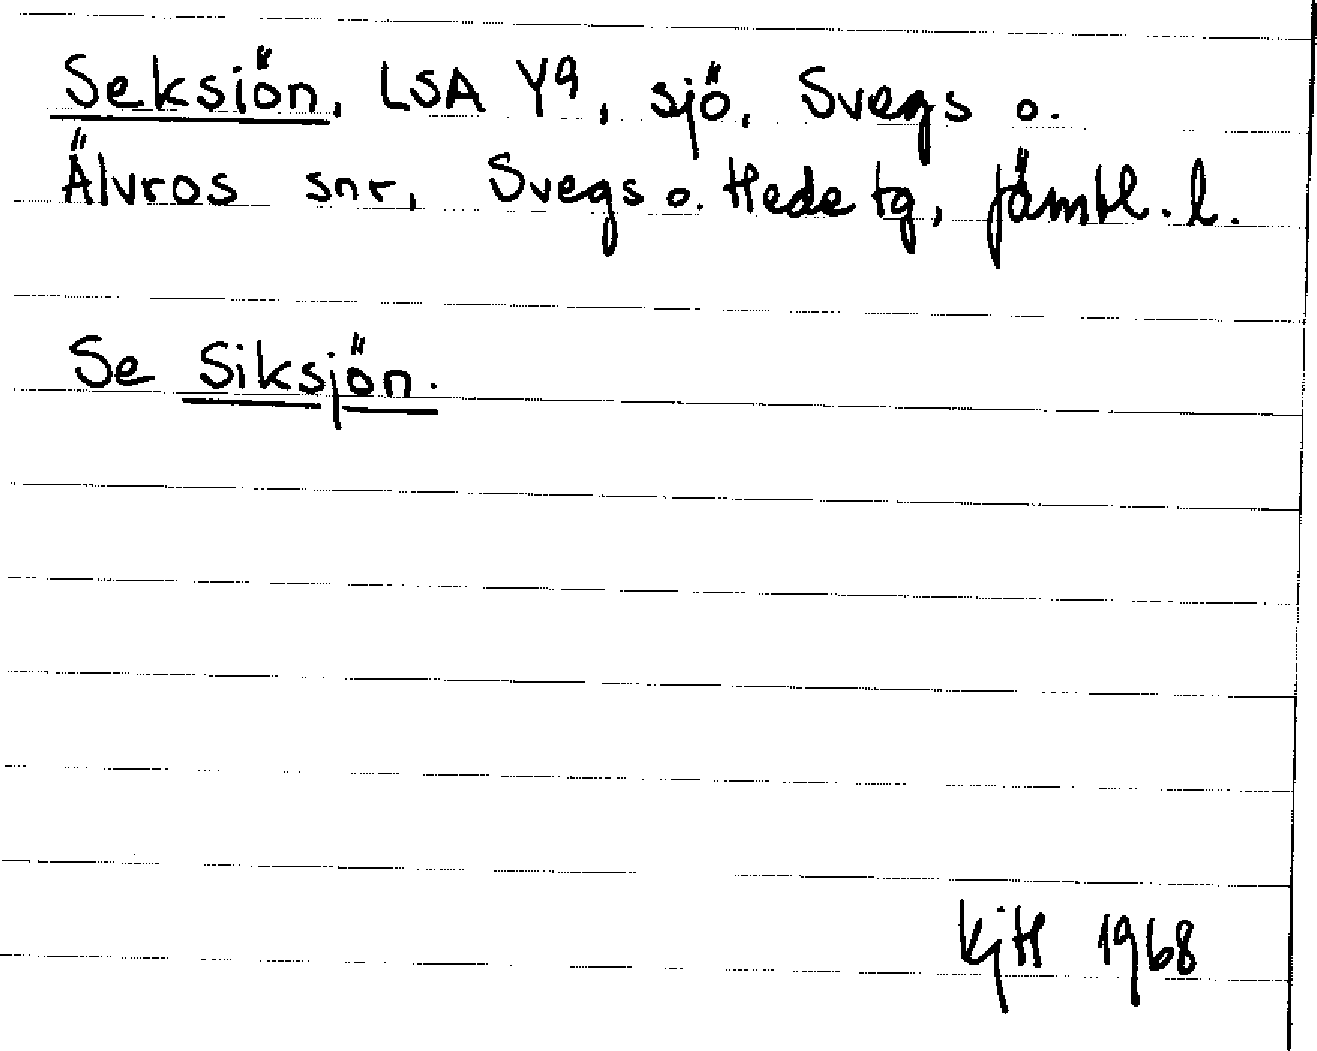 Seksiön, LSA Y9, sjö, Svegs o.
Älvros snr, Svegs o. Hede tg, Jämtl. l.
Se Siksjön.
KjH 1968